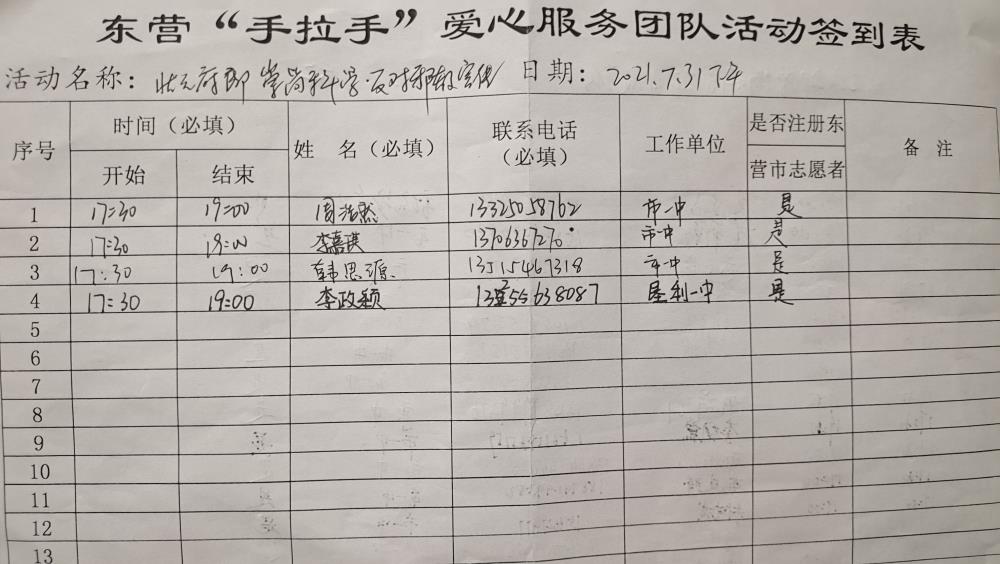 东营“手拉手”爱心服务团队活动签到表
活动名称：状元府邸 崇尚科学反对邪教宣传 日期：2021.7.31下午
序号 时间（必填） 姓 名（必填） 联系电话（必填） 工作单位 是否注册东营市志愿者 备 注
开始 结束
1 17:30 19:00 周浩然 13325058762 市一中 是
2 17:30 19:00 李嘉琪 1370636727 市一中 是
3 17:30 19:00 韩思源 13515467318 市一中 是
4 17:30 19:00 李政颖 55638087 垦利一中 是
5
6
7
8
9
10
11
12
13